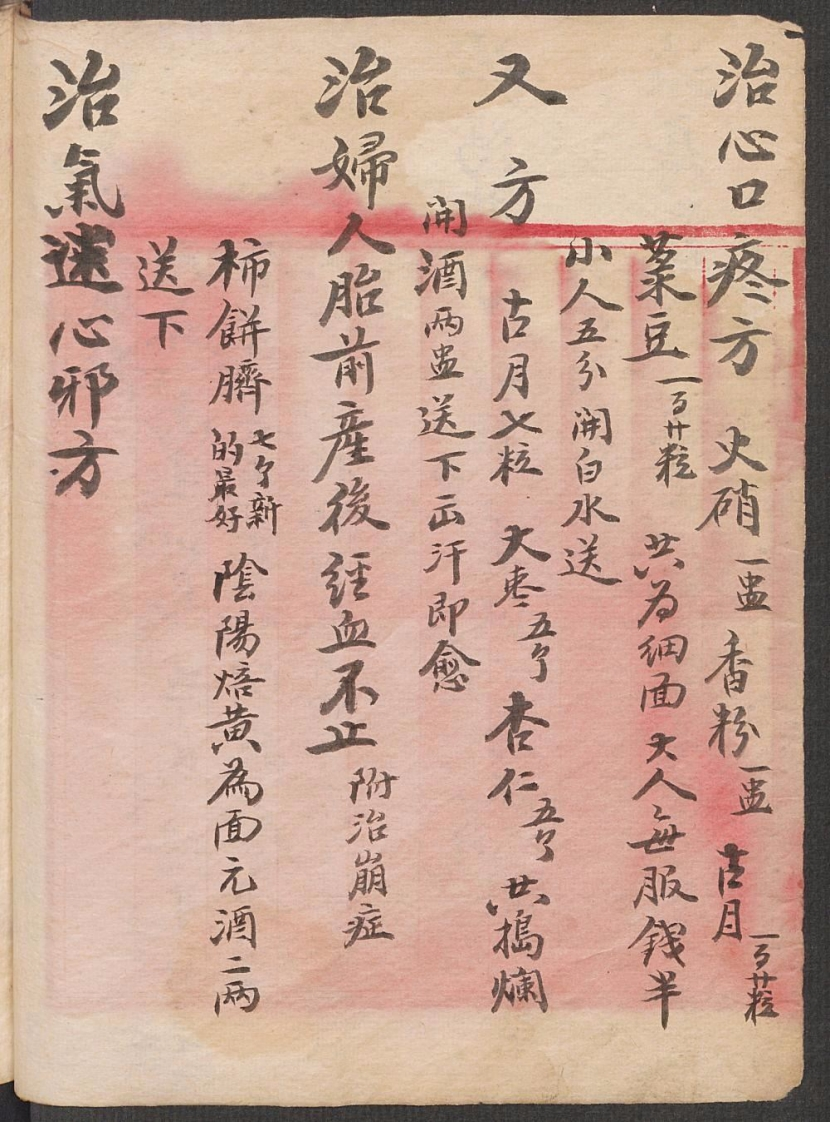 治心口疼方 火硝一盅 香粉一盅 古月一百廿粒
菉豆一百廿粒 共为細面 大人每服錢半
小人五分 開白水送
又方 古月七粒 大枣五个 杏仁五个 共搗爛
開酒兩盅送下 出汗即愈
治婦人胎前産後經血不止 附治崩症
柿餅臍 七个新的最好 陰陽焙黄為面 元酒二两
送下
治氣迷心邪方